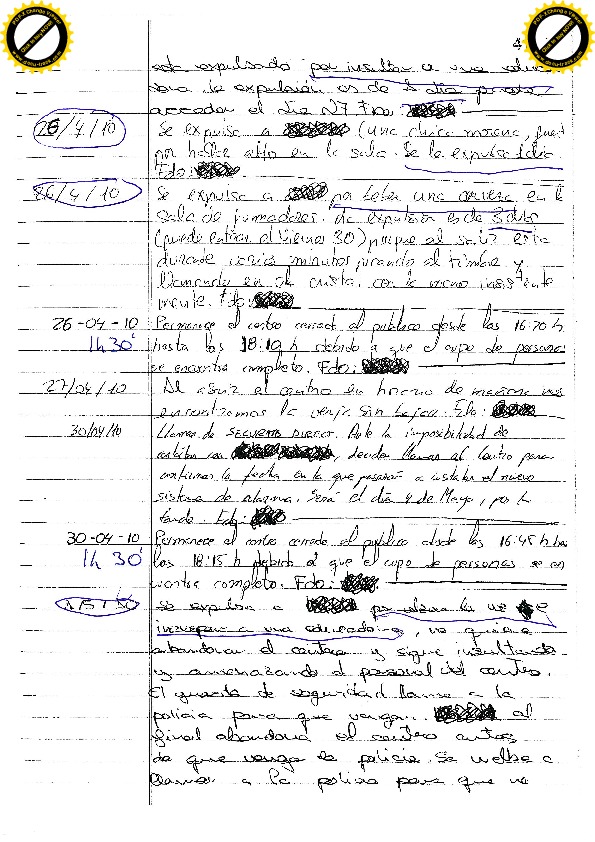 4
está expulsado por insultar a una
sora la expulsión es de 1 día puede
acceder el día 27 Fdo:
26/4/10 Se expulsa a (una chica morena,
por hablar alto en la sala. Se la expulsa 1 día.
Fdo:
26/4/10 Se expulsa a por beber una cerveza en la
sala de fumadores. La expulsión es de 3 días
(puede entrar el viernes 30) porque al salir está
durante varios minutos tocando el timbre y
llamando en el cristal con la mano insistente
mente. Fdo:
26-04-10 Permanece el centro cerrado al público desde las 16:50 h
1h 30' hasta las 18:10 h debido a que el cupo de personas
se encuentra completo. Fdo:
27/04/10 Al abrir el centro en horario de mañana nos
encontramos la verja sin bajar. Fdo:
30/04/10 Llaman de SECURITAS DIRECT. Ante la imposibilidad de
contactar con deciden llamar al centro para
confirmar la fecha en la que pasarán a instalar el nuevo
sistema de alarma. Será el día 4 de Mayo, por la
tarde. Fdo:
30-04-10 Permanece el centro cerrado al público desde las 16:45 h has
1h 30' las 18:15 h debido a que el cupo de personas se en
cuentra completo. Fdo:
Se expulsa a por
increpar a una educadora, no quiere
abandonar el centro y sigue insultando
y amenazando al personal del centro.
El guarda de seguridad llama a la
policía para que venga. al
final abandona el centro antes
de que venga la policía. Se vuelve a
llamar a la policía para que no